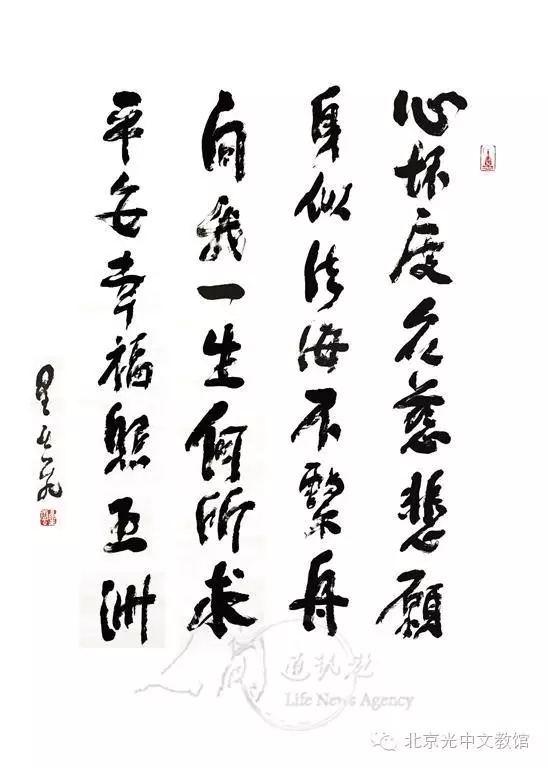 心怀度众慈悲願
身似法海不繫舟
问我一生何所求
平安幸福照五洲
星雲
人間通訊社
Life News Agency
北京光中文教馆